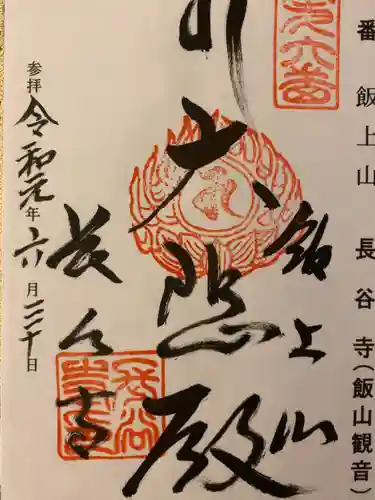 番 飯上山 長谷寺(飯山観音)
飯上山
大悲殿
長谷寺
参拝 令和元年六月三十日